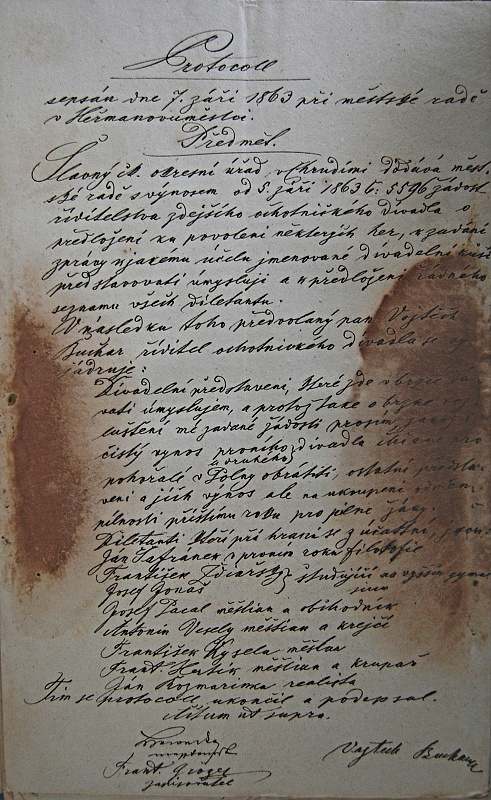 Protocoll
sepsán dne 7. září 1863 při městské radě
v Heřmanověměstci.
Předmět.
Slavný ck. okresní úřad v Chrudími dodává měst-
ské radě s výnosem od 5. září 1863 č. 5596 žádost
řiditelstva zdejšího ochotnického divadla o
předložení ku povolení některých her, k zadání
zprávy k jakému účelu jmenované divadelní
představovati úmysluji a k předložení řádného
seznamu všech diletantů.
V následku toho předvolaný pan Vojtěch
Buchar, řiditel ochotnického divadla se vy
jádruje:
Divadelní představení, které zde v brzce
vati úmyslujem, a protož také o brzké
luštění mé zadané žádosti prosím,
čistý výnos prvního divadla pro
a druhého
pohořalé v Polny obrátiti, ostatní představ
vení a jich výnos ale na ukoupení
pilnosti příštímu roku pro
Diletanti kteří při hraní se súčastní, jsou:
Ján Šafránek v prvním roku filosofie
František Zdiarský } studující na vyšším gymna
Josef Jonáš sium
Josef Pacal měštian a obchodník
Antonín Veselý měštian a krejčí
František Kysela měštan
Frant. Kutík měštian a krupař
Ján Rozmarinka realista
Tím se protocoll ukončil a podepsal.
Actum ut supra.
Frant.
zapisovatel
Vojtěch Buchar